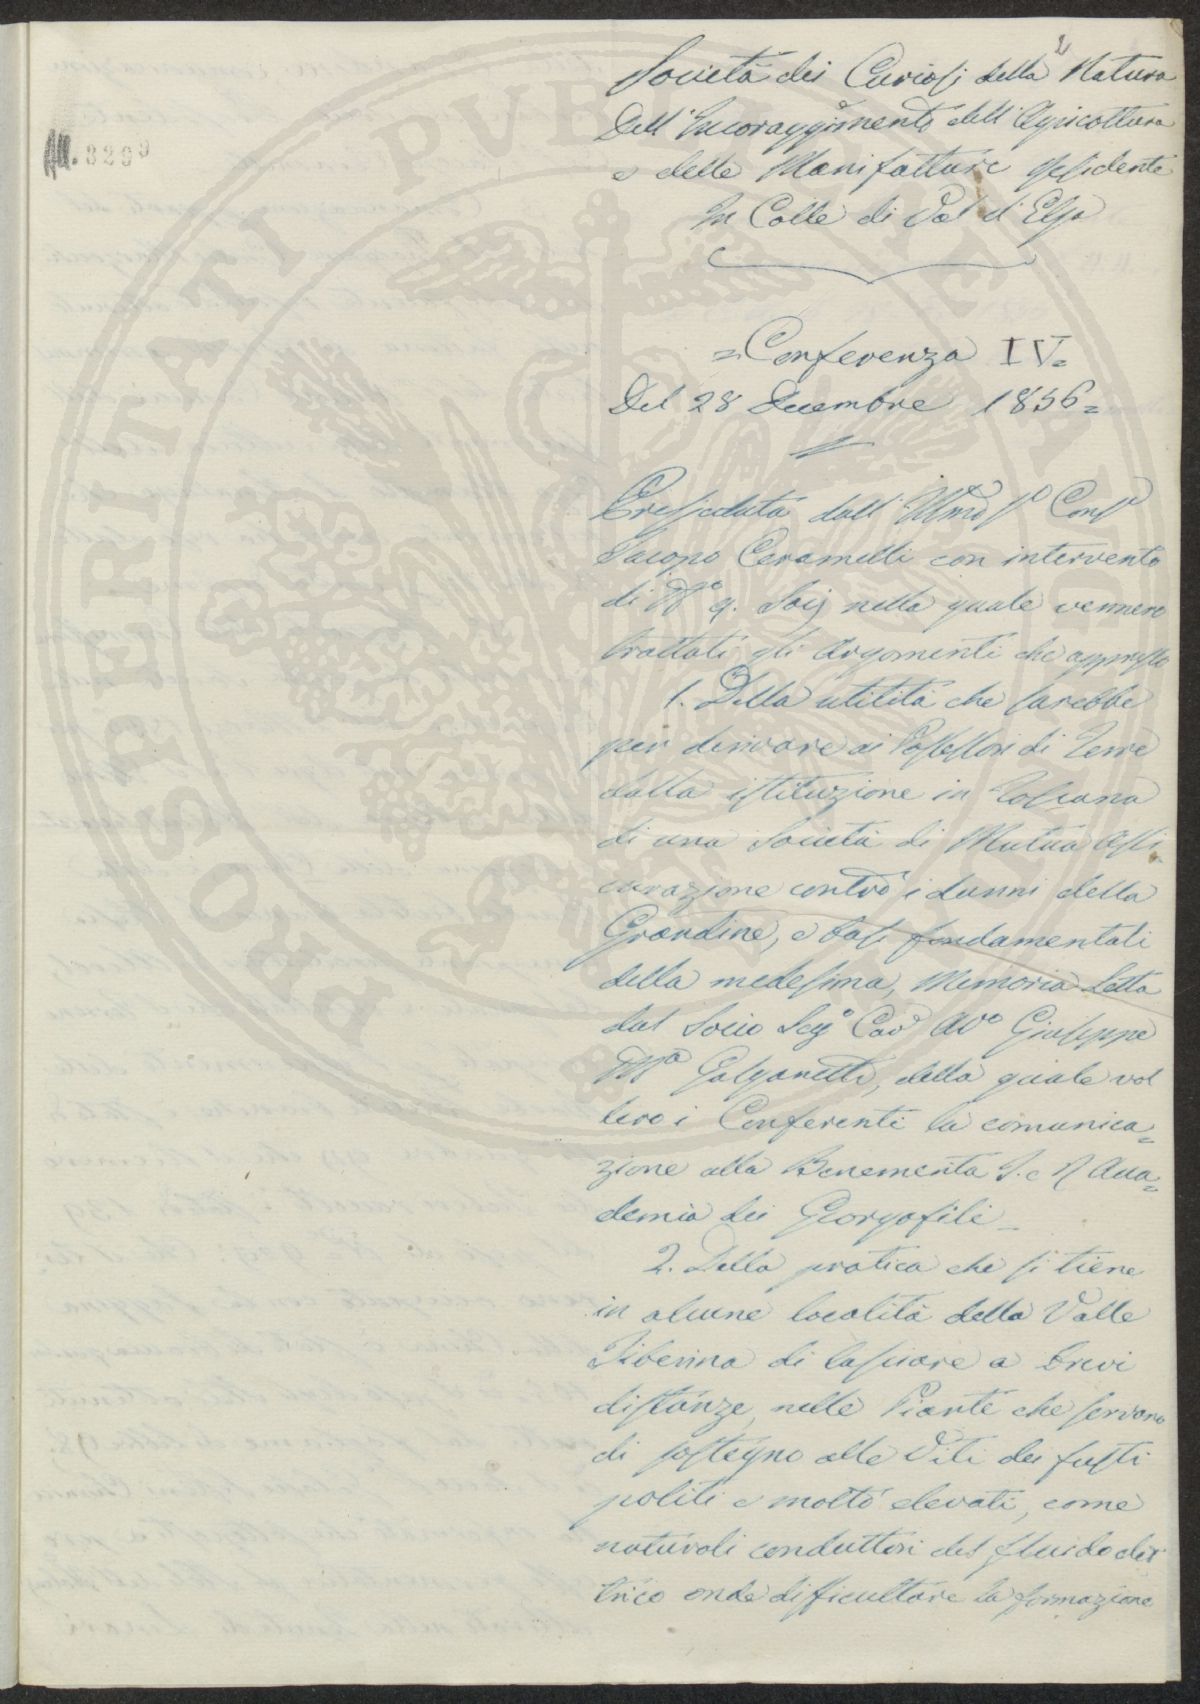 2
Società dei Curiosi della Natura
Dell'Incoraggimento dell'Agricottura
e delle Manifatture residente
In Colle di Val d'Elsa
N. 3299
= Conferenza IV =
Del 28 Decembre 1856 =
Pressieduta dall' Illmo Sr Conf
Jacopo Ceramelli con intervento
di No 9. Soij nella quale vennero
trattati gli Argomenti che appresso
1. Della utilità che sarebbe
per derivare ai Possessori di Terre
dalla istituzione in Toscana
di una Società di Mutua Assi
curazione contro i danni della
Grandine, e basi fondamentali
della medesima, Memoria Letta
dal Socio Seg° Cav° Av° Giuseppe
Ma Galganetti, della quale vol
lero i Conferenti la comunica=
zione alla Benemerita I. e R Acca=
demia dei Georgofili_
2. Della pratica che si tiene
in alcune località della Valle
Tiberina di lasciare a brevi
distanze, nelle Piante che servono
di sostegno alle Viti dei fusti
politi e molto elevati, come
naturali conduttori del fluido elet
trico onde difficultare la formazione
PROSPERITATI PVBLICAE